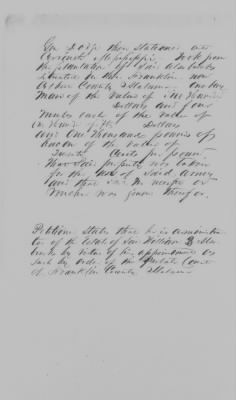 Gen Dodge then stationed at
Corinth Mississippi. Took from
the plantation of said
situated in then Franklin now
County Alabama One bay
Mare of the value of One Hundred
Dollars and four
Mules each of the value of
One Hundred & Fifty Dollars
and One thousand pounds of
bacon of the value of
Twenty Cents per pound
That said property was taken
for the use of said Army
and that no voucher or
receipt was given therefor.
Petitioner states that he is administra
tor of the Estate of William
by virtue of his appointment as
such by order of the Probate Court
of Franklin County Alabama